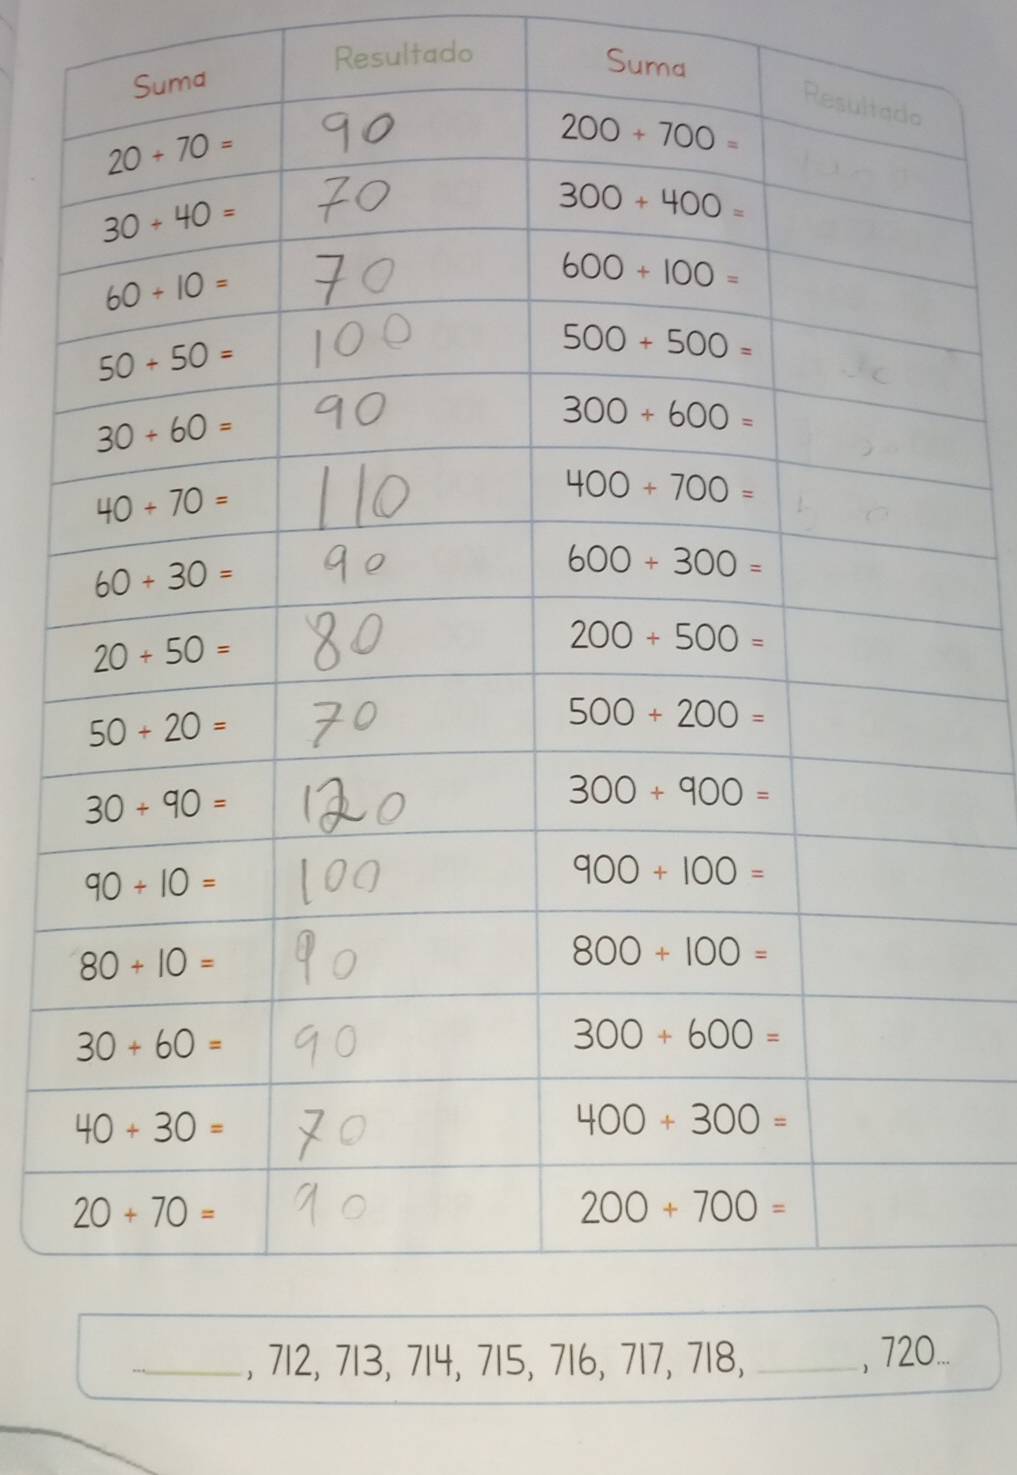 Suma Resultado Suma Resultado
20 + 70 = 90 200 + 700 =
30 + 40 = 70 300 + 400 =
60 + 10 = 70 600 + 100 =
50 + 50 = 100 500 + 500 =
30 + 60 = 90 300 + 600 =
40 + 70 = 110 400 + 700 =
60 + 30 = 90 600 + 300 =
20 + 50 = 80 200 + 500 =
50 + 20 = 70 500 + 200 =
30 + 90 = 120 300 + 900 =
90 + 10 = 100 900 + 100 =
80 + 10 = 90 800 + 100 =
30 + 60 = 90 300 + 600 =
40 + 30 = 70 400 + 300 =
20 + 70 = 90 200 + 700 =
...______, 712, 713, 714, 715, 716, 717, 718, ______, 720...